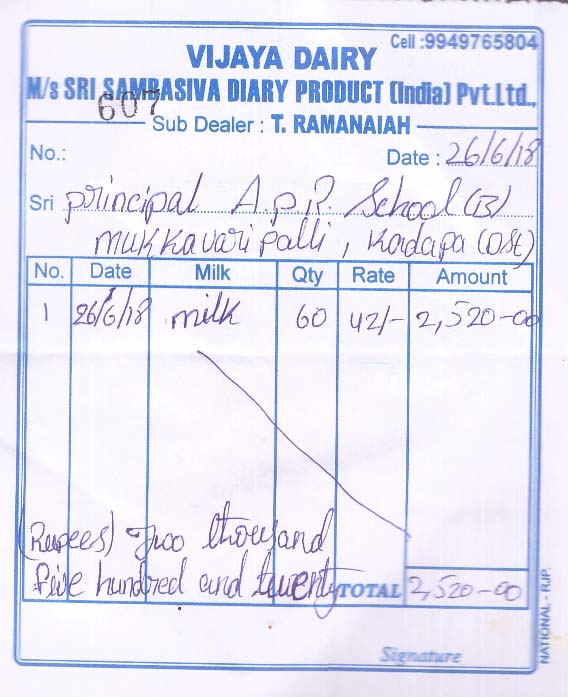 Cell :9949765804
VIJAYA DAIRY
M/s SRI SAMBASIVA DIARY PRODUCT (India) Pvt.Ltd.,
607
Sub Dealer : T. RAMANAIAH
No.: Date : 26/6/18
Sri principal A.P.R. School (B)
mukkavaripalli, Kadapa (Dst)
No. Date Milk Qty Rate Amount
1 26/6/18 milk 60 42/- 2,520-00
(Rupees) Two thousand
five hundred and twenty TOTAL 2,520-00
Signature
NATIONAL - RJP.